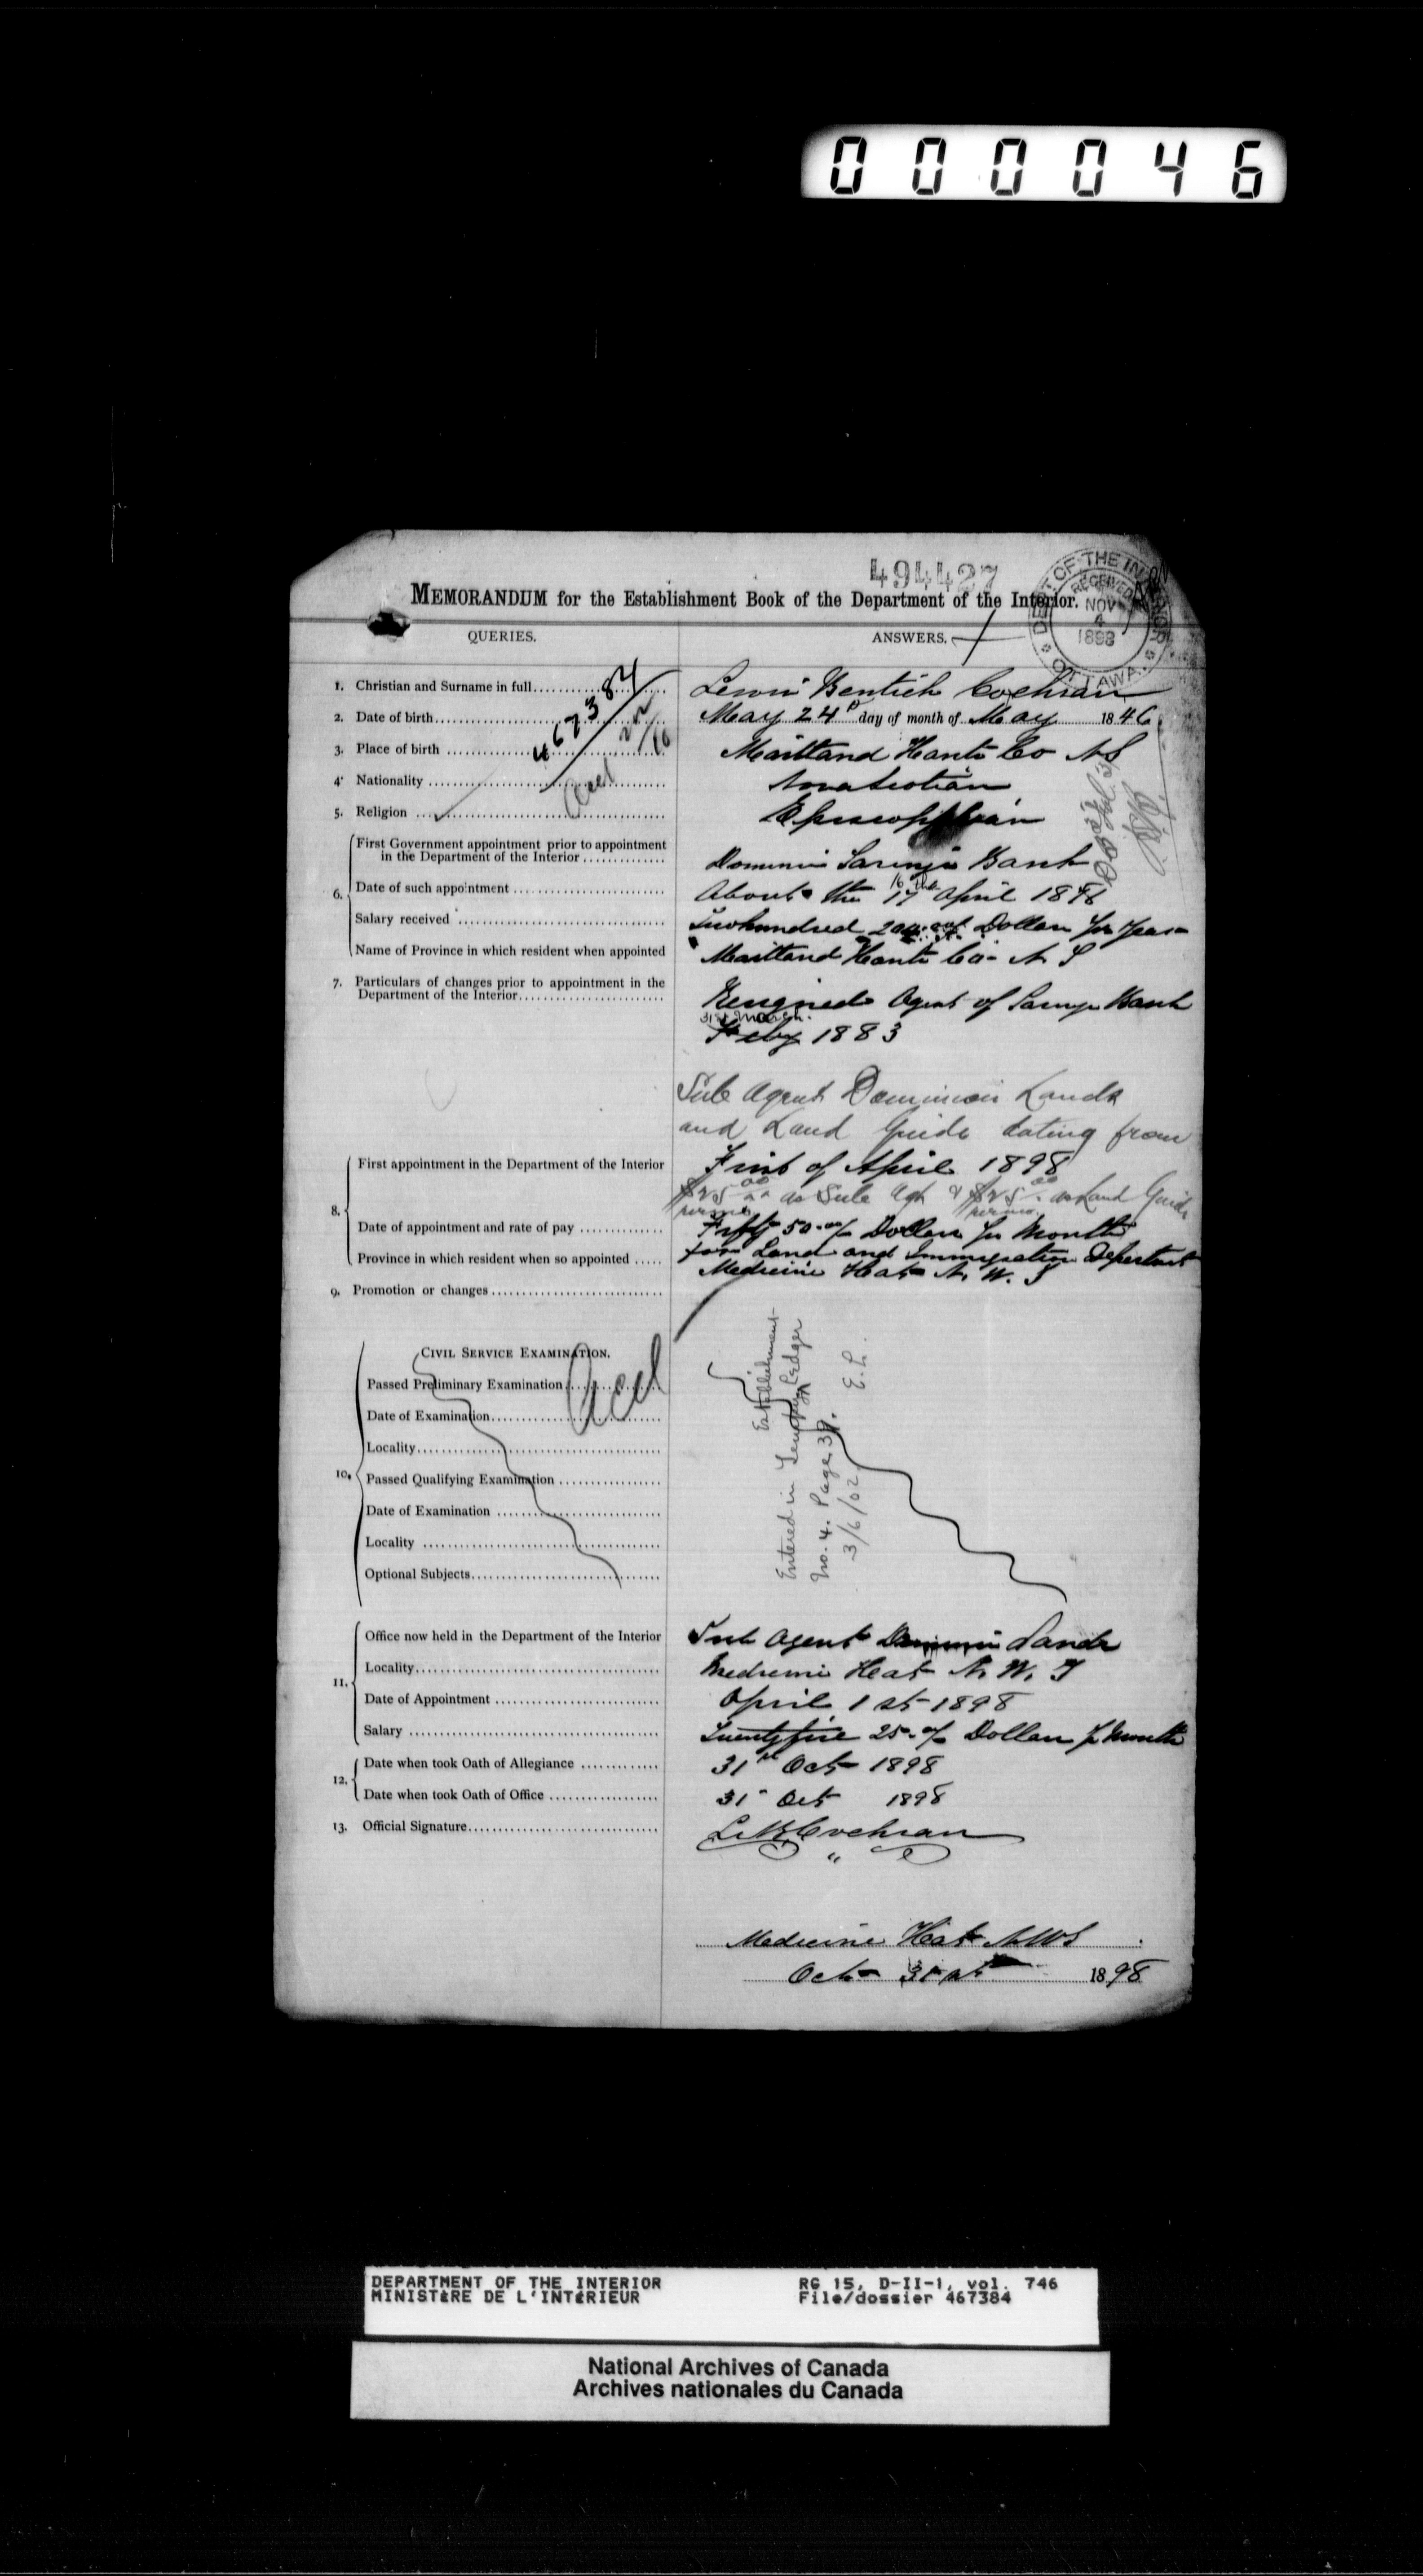 000046
494427
MEMORANDUM for the Establishment Book of the Department of the Interior.
DEPT OF THE INTERIOR
RECEIVED
NOV
4
1898
OTTAWA
QUERIES.
ANSWERS.
467384
1. Christian and Surname in full
Cochran
2. Date of birth
May 24th day of month of May 1846
3. Place of birth
Maitland Hants Co N S
4. Nationality
Novascotian
5. Religion
Episcopalian
6. First Government appointment prior to appointment
in the Department of the Interior
Dominion Savings Bank
Date of such appointment
About the 17 16th April 1878
Salary received
Twohundred Dollars per year
Name of Province in which resident when appointed
Maitland Hants Co N S
7. Particulars of changes prior to appointment in the
Department of the Interior
Resigned Agent of Savings Bank
31st March.
Feby 1883
Sub Agent Dominion Lands
and Land Guide dating from
8. First appointment in the Department of the Interior
First of April 1898
$25 00 as Sub Agt & $25 00 as Land Guide
Date of appointment and rate of pay
Fifty 50 Dollars per Month
for Land and Immigration Department
Province in which resident when so appointed
Medicine Hat N. W. T
9. Promotion or changes
CIVIL SERVICE EXAMINATION.
10. Passed Preliminary Examination
Date of Examination
Locality
Passed Qualifying Examination
Date of Examination
Locality
Optional Subjects
Establishment
Entered in Ledger
No. 4. Page 37.
3/6/02 E.L.
11. Office now held in the Department of the Interior
Sub Agent Dominion Lands
Locality
Medicine Hat N. W. T
Date of Appointment
April 1st 1898
Salary
Twentyfive 25 Dollars per Month
12. Date when took Oath of Allegiance
31st Oct 1898
Date when took Oath of Office
31 Oct 1898
13. Official Signature
L. B. Cochran
Medicine Hat NWT
Oct 31st 1898
DEPARTMENT OF THE INTERIOR
MINISTÈRE DE L'INTÉRIEUR
RG 15, D-II-1, vol. 746
File/dossier 467384
National Archives of Canada
Archives nationales du Canada